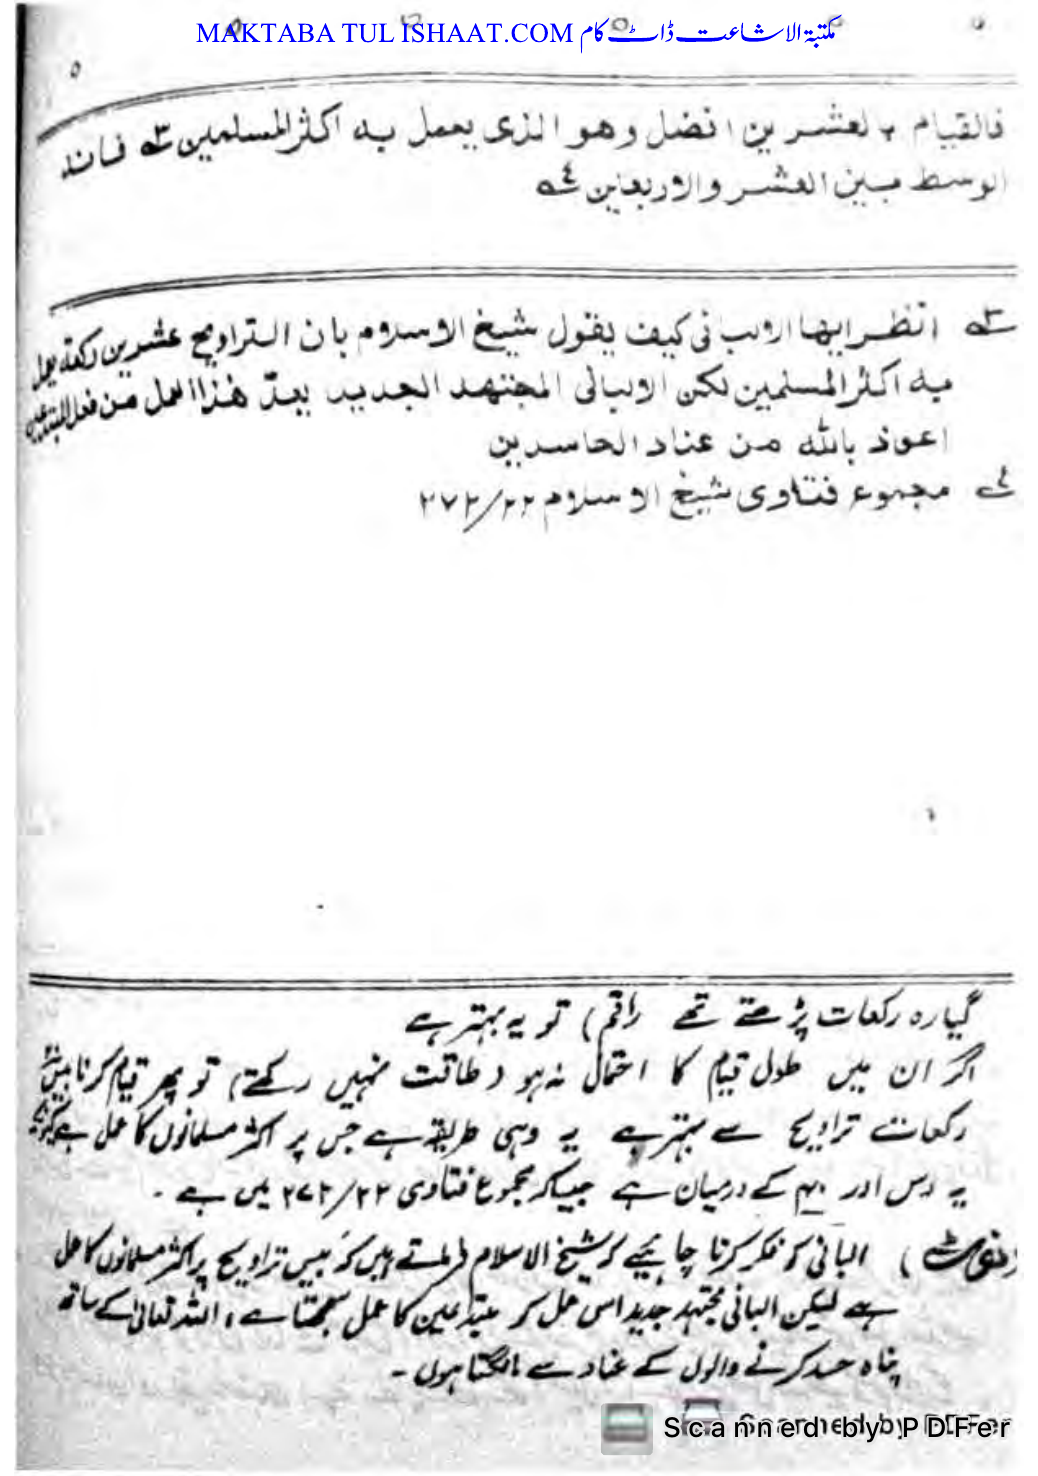 MAKTABA TUL ISHAAT.COM مکتبۃ الاشاعت ڈاٹ کام
۵
فالقيام بالعشرين افضل وهو الذى يعمل به اكثر المسلمين ٣ فانه
الوسط بين العشر والاربعين ٤
٣ انظر ايها الالبانى كيف يقول شيخ الاسلام بان التراويح عشرين ركعة يعمل
به اكثر المسلمين لكن الالبانى المجتهد الجديد يعدّ هذا العمل من فعل المبتدعين
اعوذ بالله من عناد الحاسدين
٤ مجموع فتاوى شيخ الاسلام ٢٢/٢٧٢
گیارہ رکعات پڑھتے تھے راقم) تو یہ بہتر ہے
اگر ان میں طول قیام کا احتمال نہ ہو (طاقت نہیں رکھتے) تو پھر قیام کرنا بیس
رکعات تراویح سے بہتر ہے یہ وہی طریقہ ہے جس پر اکثر مسلمانوں کا عمل ہے کیونکہ
یہ دس اور ۴۰ کے درمیان ہے جیسا کہ مجموع فتاوی ۲۲/۲۷۲ میں ہے ۔
(نوٹ) البانی کو فکر کرنا چاہیئے کہ شیخ الاسلام فرماتے ہیں کہ بیس تراویح پر اکثر مسلمانوں کا عمل
ہے لیکن البانی مجتہد جدید اس عمل کو مبتدعین کا عمل سمجھتا ہے، اللہ تعالیٰ کے ساتھ
پناہ حسد کرنے والوں کے عناد سے مانگتا ہوں ۔
Scanned by PDFer